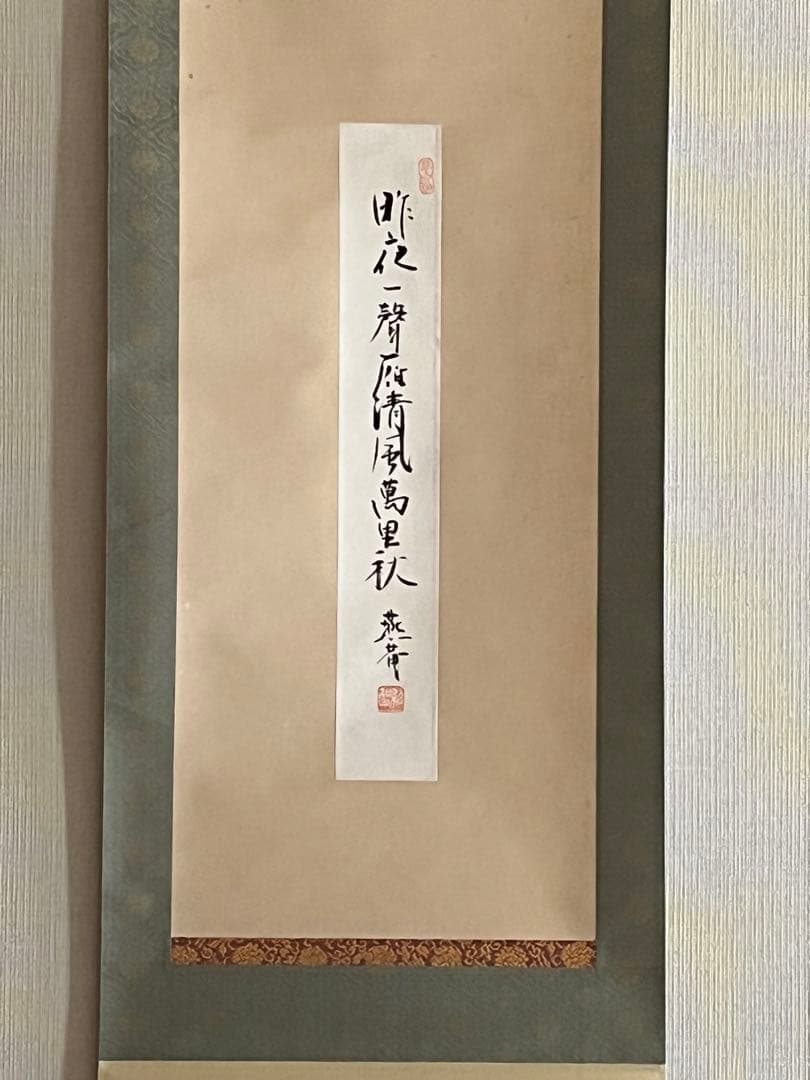 昨夜一聲雁清風萬里秋
燕菴